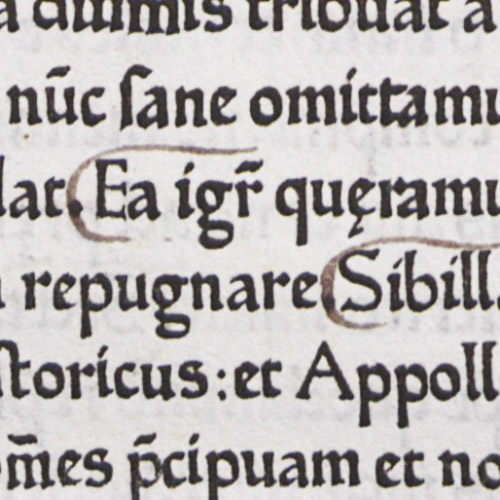 a diuinis tribuat a
nūc ſane omittamu
lat. Ea igr̄ quęramu
repugnare Sibill
ſtoricus: et Appoll
om̄es p̄cipuam et no